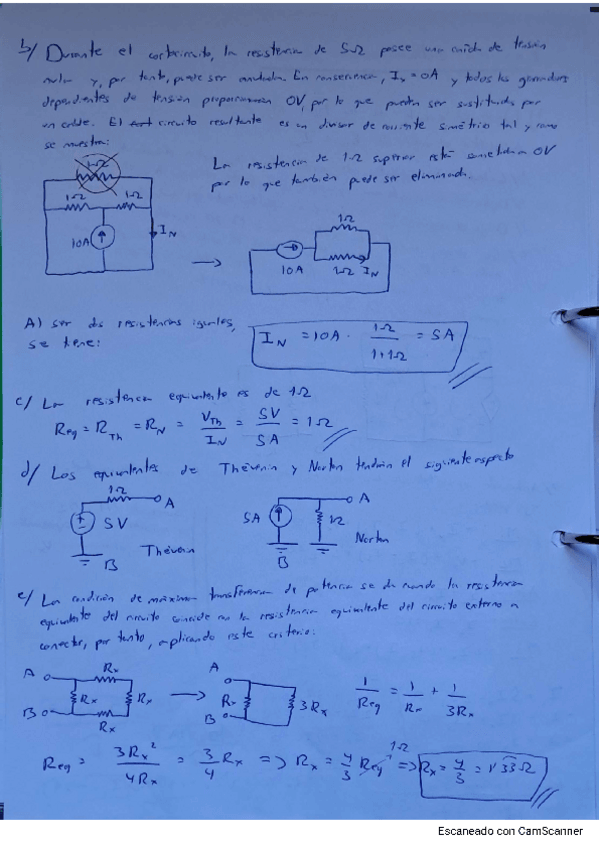 b/ Durante el cortocircuito, la resistencia de 5Ω posee una caída de tensión
nula y, por tanto, puede ser anulada. En consecuencia, Ix = 0A y todos los generadores
dependientes de tensión proporcionan 0V, por lo que pueden ser sustituidos por
un cable. El circuito resultante es un divisor de corriente simétrico tal y como
se muestra:
La resistencia de 1Ω superior está sometida a 0V
por lo que también puede ser eliminada.
1Ω
1Ω 1Ω
10A
IN
→
1Ω
10A 1Ω IN
Al ser dos resistencias iguales,
se tiene:
IN = 10A · 1Ω / 1+1Ω = 5A
c/ La resistencia equivalente es de 1Ω
Req = RTh = RN = VTh / IN = 5V / 5A = 1Ω
d/ Los equivalentes de Thévenin y Norton tendrán el siguiente aspecto
1Ω A
5V
B Thévenin
A
5A 1Ω
B Norton
e/ La condición de máxima transferencia de potencia se da cuando la resistencia
equivalente del circuito coincide con la resistencia equivalente del circuito externo a
conectar, por tanto, aplicando este criterio:
A Rx
Rx Rx
B Rx
→
A
Rx 3Rx
B
1 / Req = 1 / Rx + 1 / 3Rx
Req = 3Rx² / 4Rx = 3/4 Rx => Rx = 4/3 Req 1Ω => Rx = 4/3 = 1'33Ω
Escaneado con CamScanner